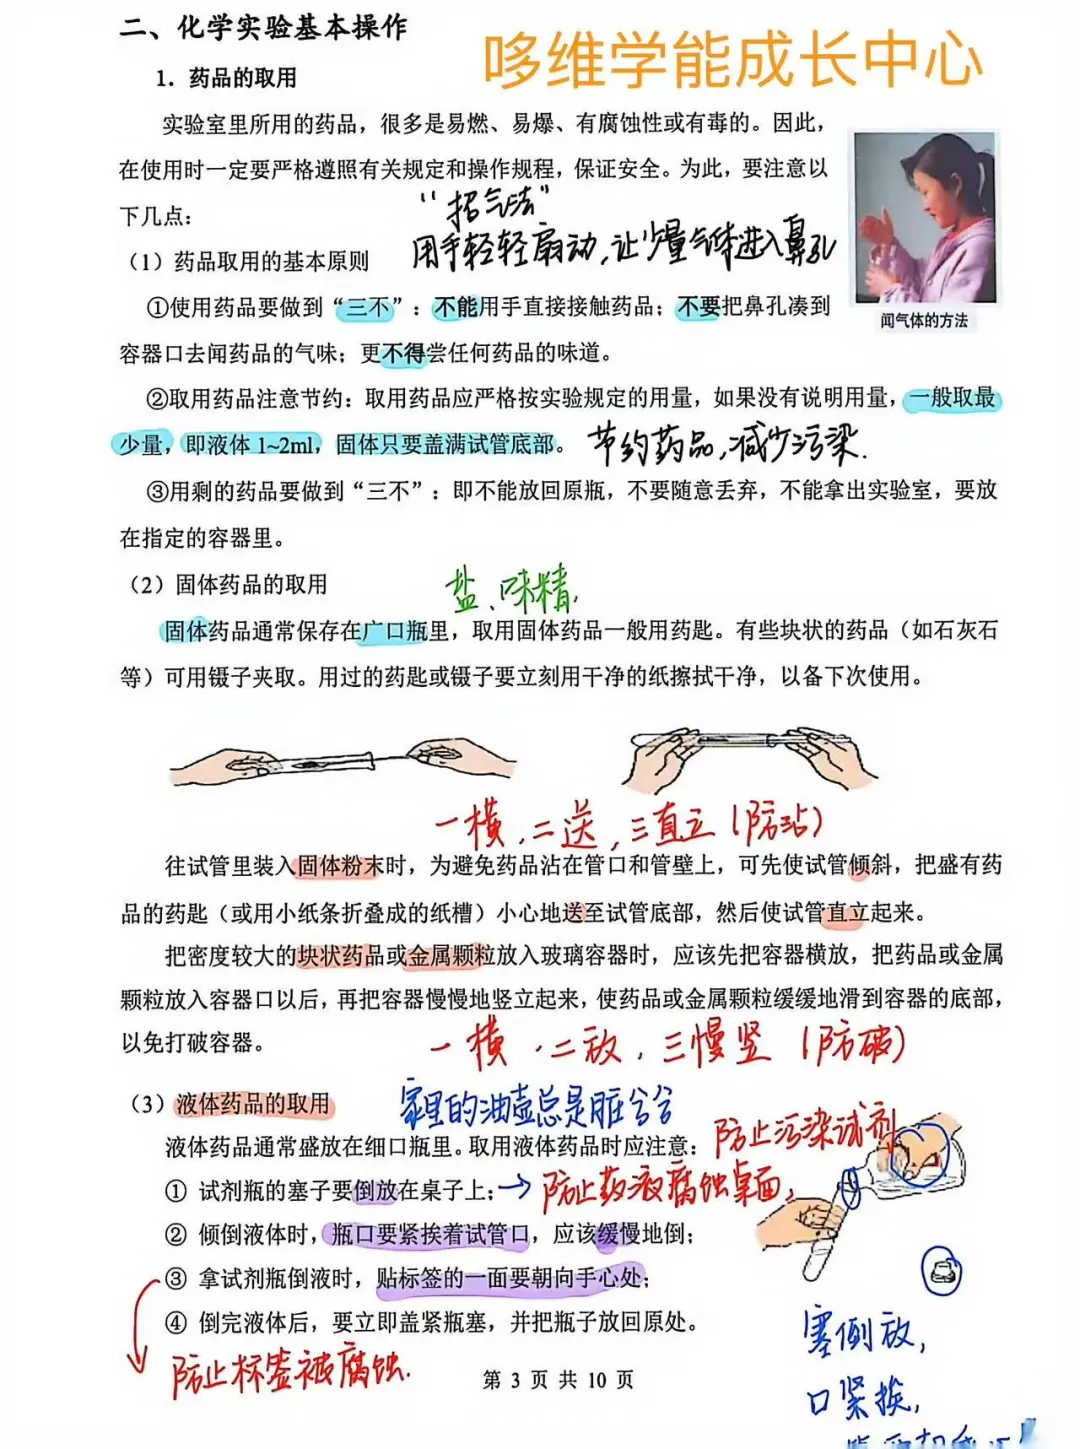 二、化学实验基本操作
哆维学能成长中心
1．药品的取用
实验室里所用的药品，很多是易燃、易爆、有腐蚀性或有毒的。因此，
在使用时一定要严格遵照有关规定和操作规程，保证安全。为此，要注意以
下几点：
“招气法”
用手轻轻扇动，让少量气体进入鼻孔
闻气体的方法
（1）药品取用的基本原则
①使用药品要做到“三不”：不能用手直接接触药品；不要把鼻孔凑到
容器口去闻药品的气味；更不得尝任何药品的味道。
②取用药品注意节约：取用药品应严格按实验规定的用量，如果没有说明用量，一般取最
少量，即液体 1~2ml，固体只要盖满试管底部。
节约药品，减少污染.
③用剩的药品要做到“三不”：即不能放回原瓶，不要随意丢弃，不能拿出实验室，要放
在指定的容器里。
（2）固体药品的取用
盐、味精，
固体药品通常保存在广口瓶里，取用固体药品一般用药匙。有些块状的药品（如石灰石
等）可用镊子夹取。用过的药匙或镊子要立刻用干净的纸擦拭干净，以备下次使用。
一横，二送，三直立（防沾）
往试管里装入固体粉末时，为避免药品沾在管口和管壁上，可先使试管倾斜，把盛有药
品的药匙（或用小纸条折叠成的纸槽）小心地送至试管底部，然后使试管直立起来。
把密度较大的块状药品或金属颗粒放入玻璃容器时，应该先把容器横放，把药品或金属
颗粒放入容器口以后，再把容器慢慢地竖立起来，使药品或金属颗粒缓缓地滑到容器的底部，
以免打破容器。
一横，二放，三慢竖（防破）
（3）液体药品的取用
家里的油壶总是脏兮兮
液体药品通常盛放在细口瓶里。取用液体药品时应注意：
防止污染试剂
① 试剂瓶的塞子要倒放在桌子上；
→防止药液腐蚀桌面，
② 倾倒液体时，瓶口要紧挨着试管口，应该缓慢地倒；
③ 拿试剂瓶倒液时，贴标签的一面要朝向手心处；
④ 倒完液体后，要立即盖紧瓶塞，并把瓶子放回原处。
防止标签被腐蚀.
塞倒放，
口紧挨，
第 3 页 共 10 页